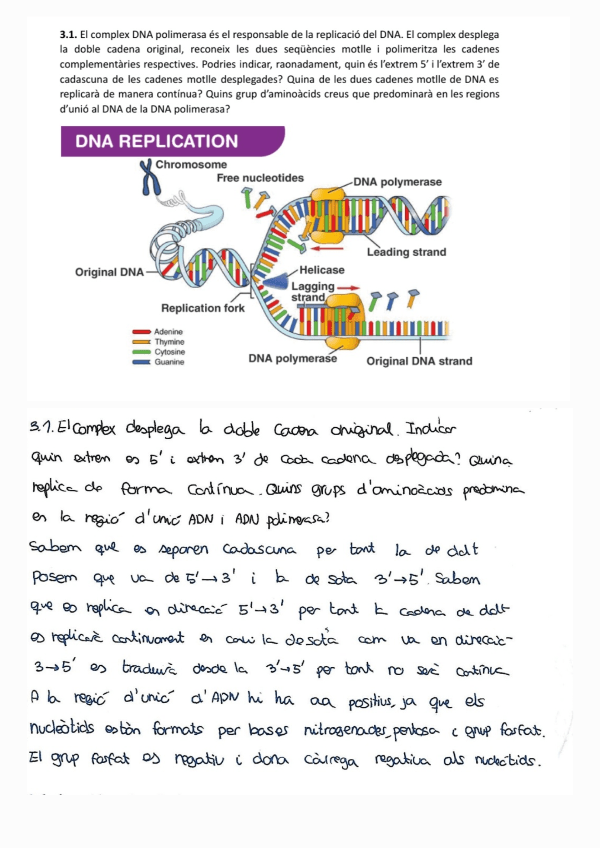 3.1. El complex DNA polimerasa és el responsable de la replicació del DNA. El complex desplega
la doble cadena original, reconeix les dues seqüències motlle i polimeritza les cadenes
complementàries respectives. Podries indicar, raonadament, quin és l’extrem 5’ i l’extrem 3’ de
cadascuna de les cadenes motlle desplegades? Quina de les dues cadenes motlle de DNA es
replicarà de manera contínua? Quins grup d’aminoàcids creus que predominarà en les regions
d’unió al DNA de la DNA polimerasa?
DNA REPLICATION
Chromosome
Free nucleotides
DNA polymerase
Leading strand
Original DNA
Helicase
Lagging
strand
Replication fork
Adenine
Thymine
Cytosine
Guanine
DNA polymerase
Original DNA strand
3.1. El complex desplega la doble cadena original. Indicar
quin extrem es 5' i extrem 3' de cada cadena desplegada? Quina
replica de forma contínua. Quins grups d'aminoàcids predomina
en la regió d'unió ADN i ADN polimerasa?
Sabem que es separen cadascuna per tant la de dalt
posem que va de 5'→3' i la de sota 3'→5'. Sabem
que es replica en direcció 5'→3' per tant la cadena de dalt
es replicarà continuament en canvi la de sota com va en direcció
3→5' es traduirà desde la 3'→5' per tant no serà contínua
A la regió d'unió d'ADN hi ha aa positius, ja que els
nucleòtids estàn formats per bases nitrogenades, pentosa i grup fosfat.
El grup fosfat es negatiu i dona càrrega negativa als nucleòtids.